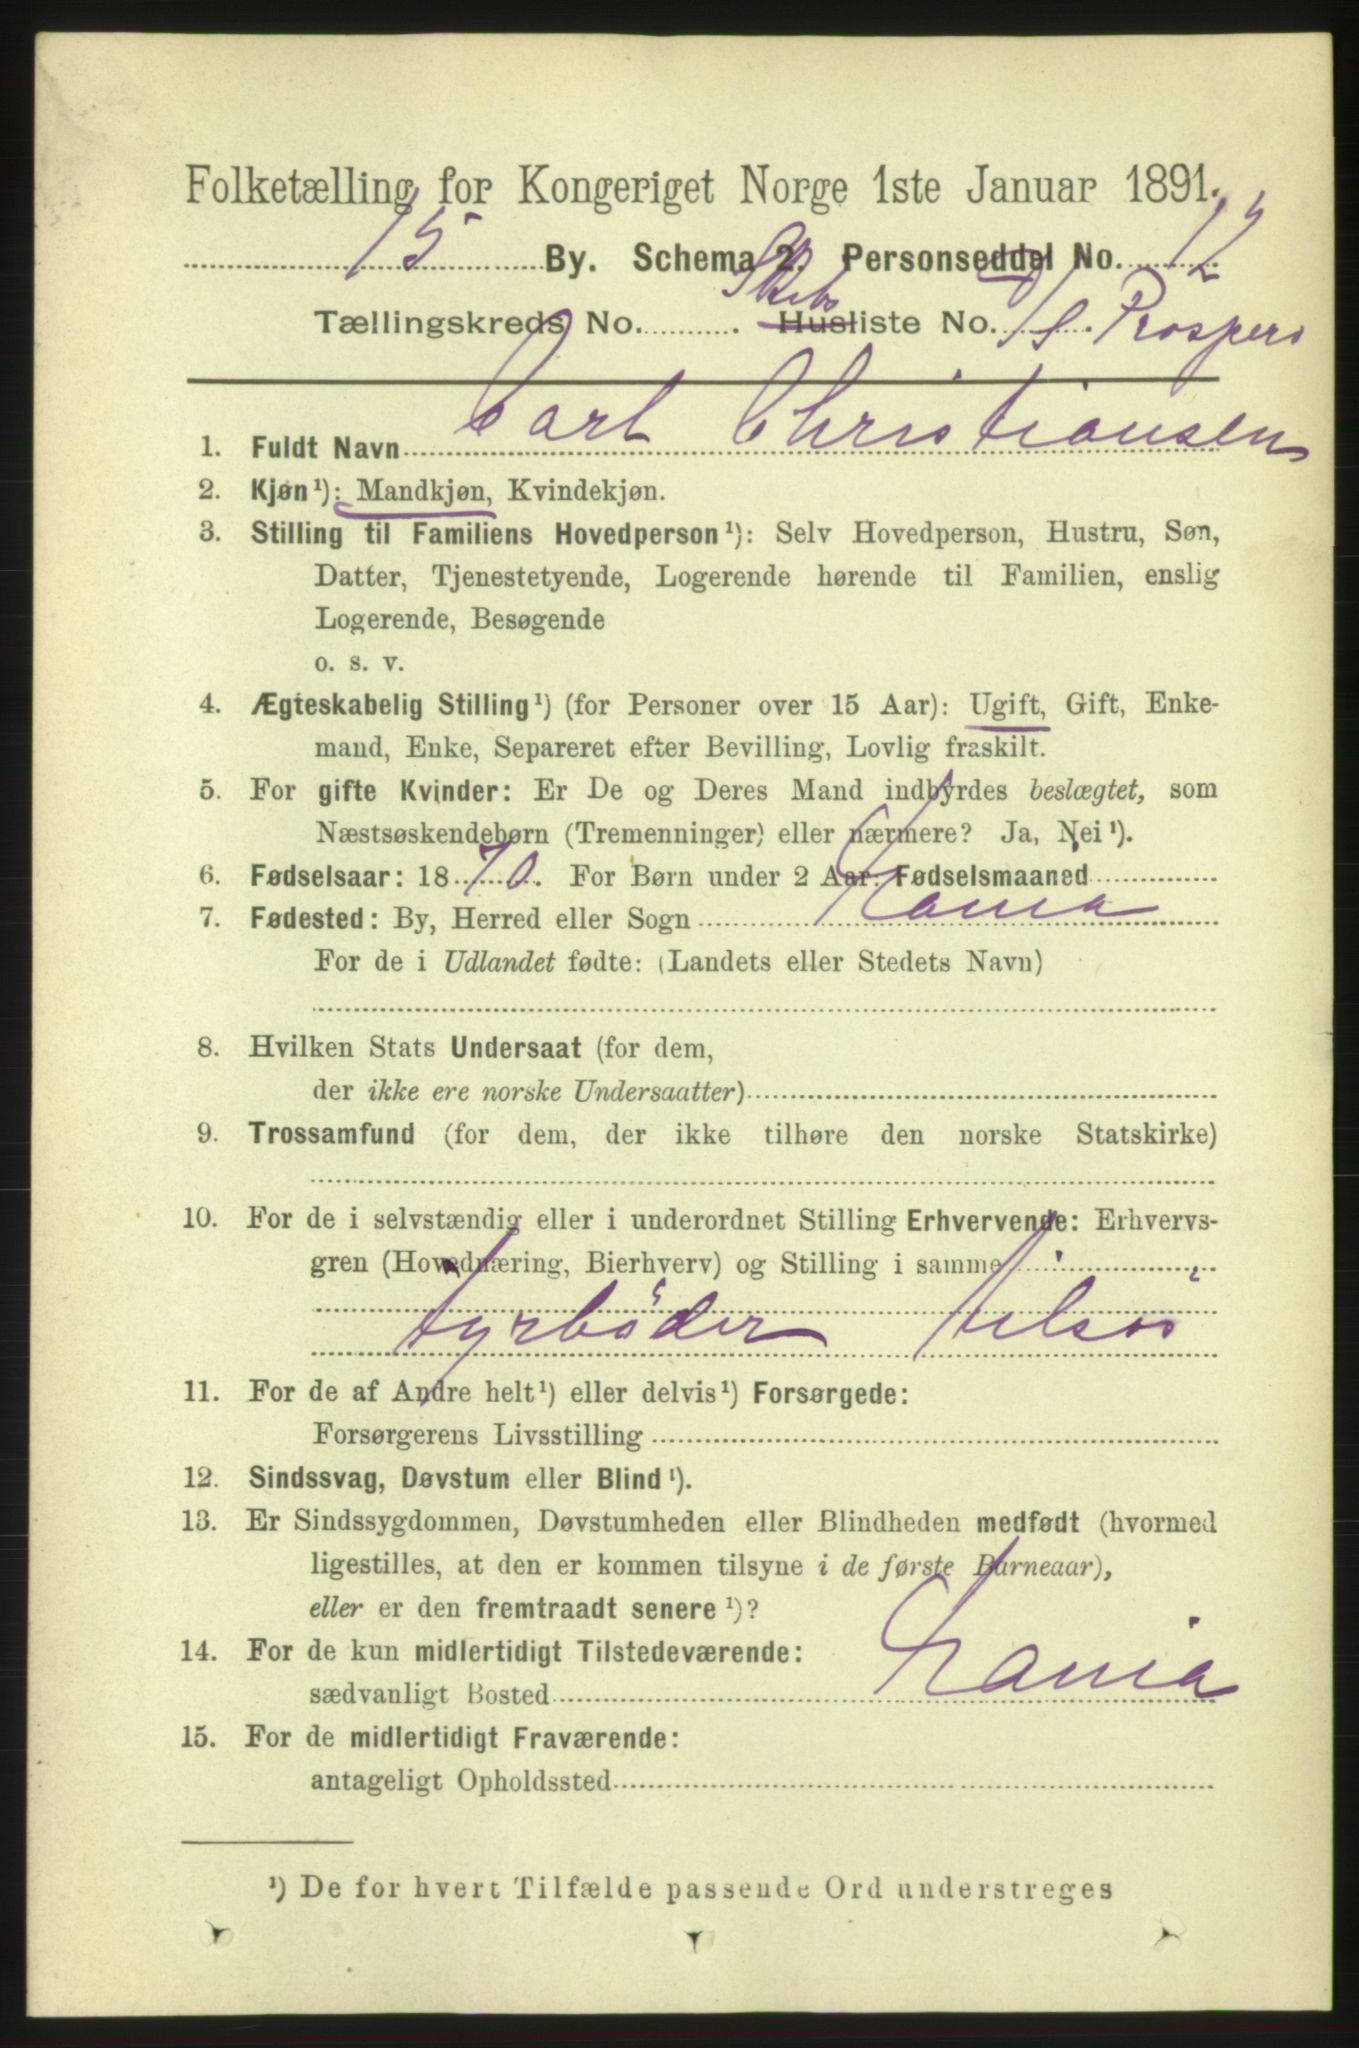 Folketælling for Kongeriget Norge 1ste Januar 1891.
15 By. Schema 2. Personseddel No. 12
Tællingskreds No. . Skibs Husliste No. D/S Prospero
1. Fuldt Navn Carl Christiansen
2. Kjøn¹): Mandkjøn, Kvindekjøn.
3. Stilling til Familiens Hovedperson¹): Selv Hovedperson, Hustru, Søn,
Datter, Tjenestetyende, Logerende hørende til Familien, enslig
Logerende, Besøgende
o. s. v.
4. Ægteskabelig Stilling¹) (for Personer over 15 Aar): Ugift, Gift, Enke-
mand, Enke, Separeret efter Bevilling, Lovlig fraskilt.
5. For gifte Kvinder: Er De og Deres Mand indbyrdes beslægtet, som
Næstsøskendebørn (Tremenninger) eller nærmere? Ja, Nei¹).
6. Fødselsaar: 1870. For Børn under 2 Aar: Fødselsmaaned
7. Fødested: By, Herred eller Sogn Xania
For de i Udlandet fødte: (Landets eller Stedets Navn)
8. Hvilken Stats Undersaat (for dem,
der ikke ere norske Undersaatter)
9. Trossamfund (for dem, der ikke tilhøre den norske Statskirke)
10. For de i selvstændig eller i underordnet Stilling Erhvervende: Erhvervs-
gren (Hovednæring, Bierhverv) og Stilling i samme
fyrböder tilsös
11. For de af Andre helt¹) eller delvis¹) Forsørgede:
Forsørgerens Livsstilling
12. Sindssvag, Døvstum eller Blind¹).
13. Er Sindssygdommen, Døvstumheden eller Blindheden medfødt (hvormed
ligestilles, at den er kommen tilsyne i de første Barneaar),
eller er den fremtraadt senere¹)?
14. For de kun midlertidigt Tilstedeværende:
sædvanligt Bosted Xania
15. For de midlertidigt Fraværende:
antageligt Opholdssted
¹) De for hvert Tilfælde passende Ord understreges